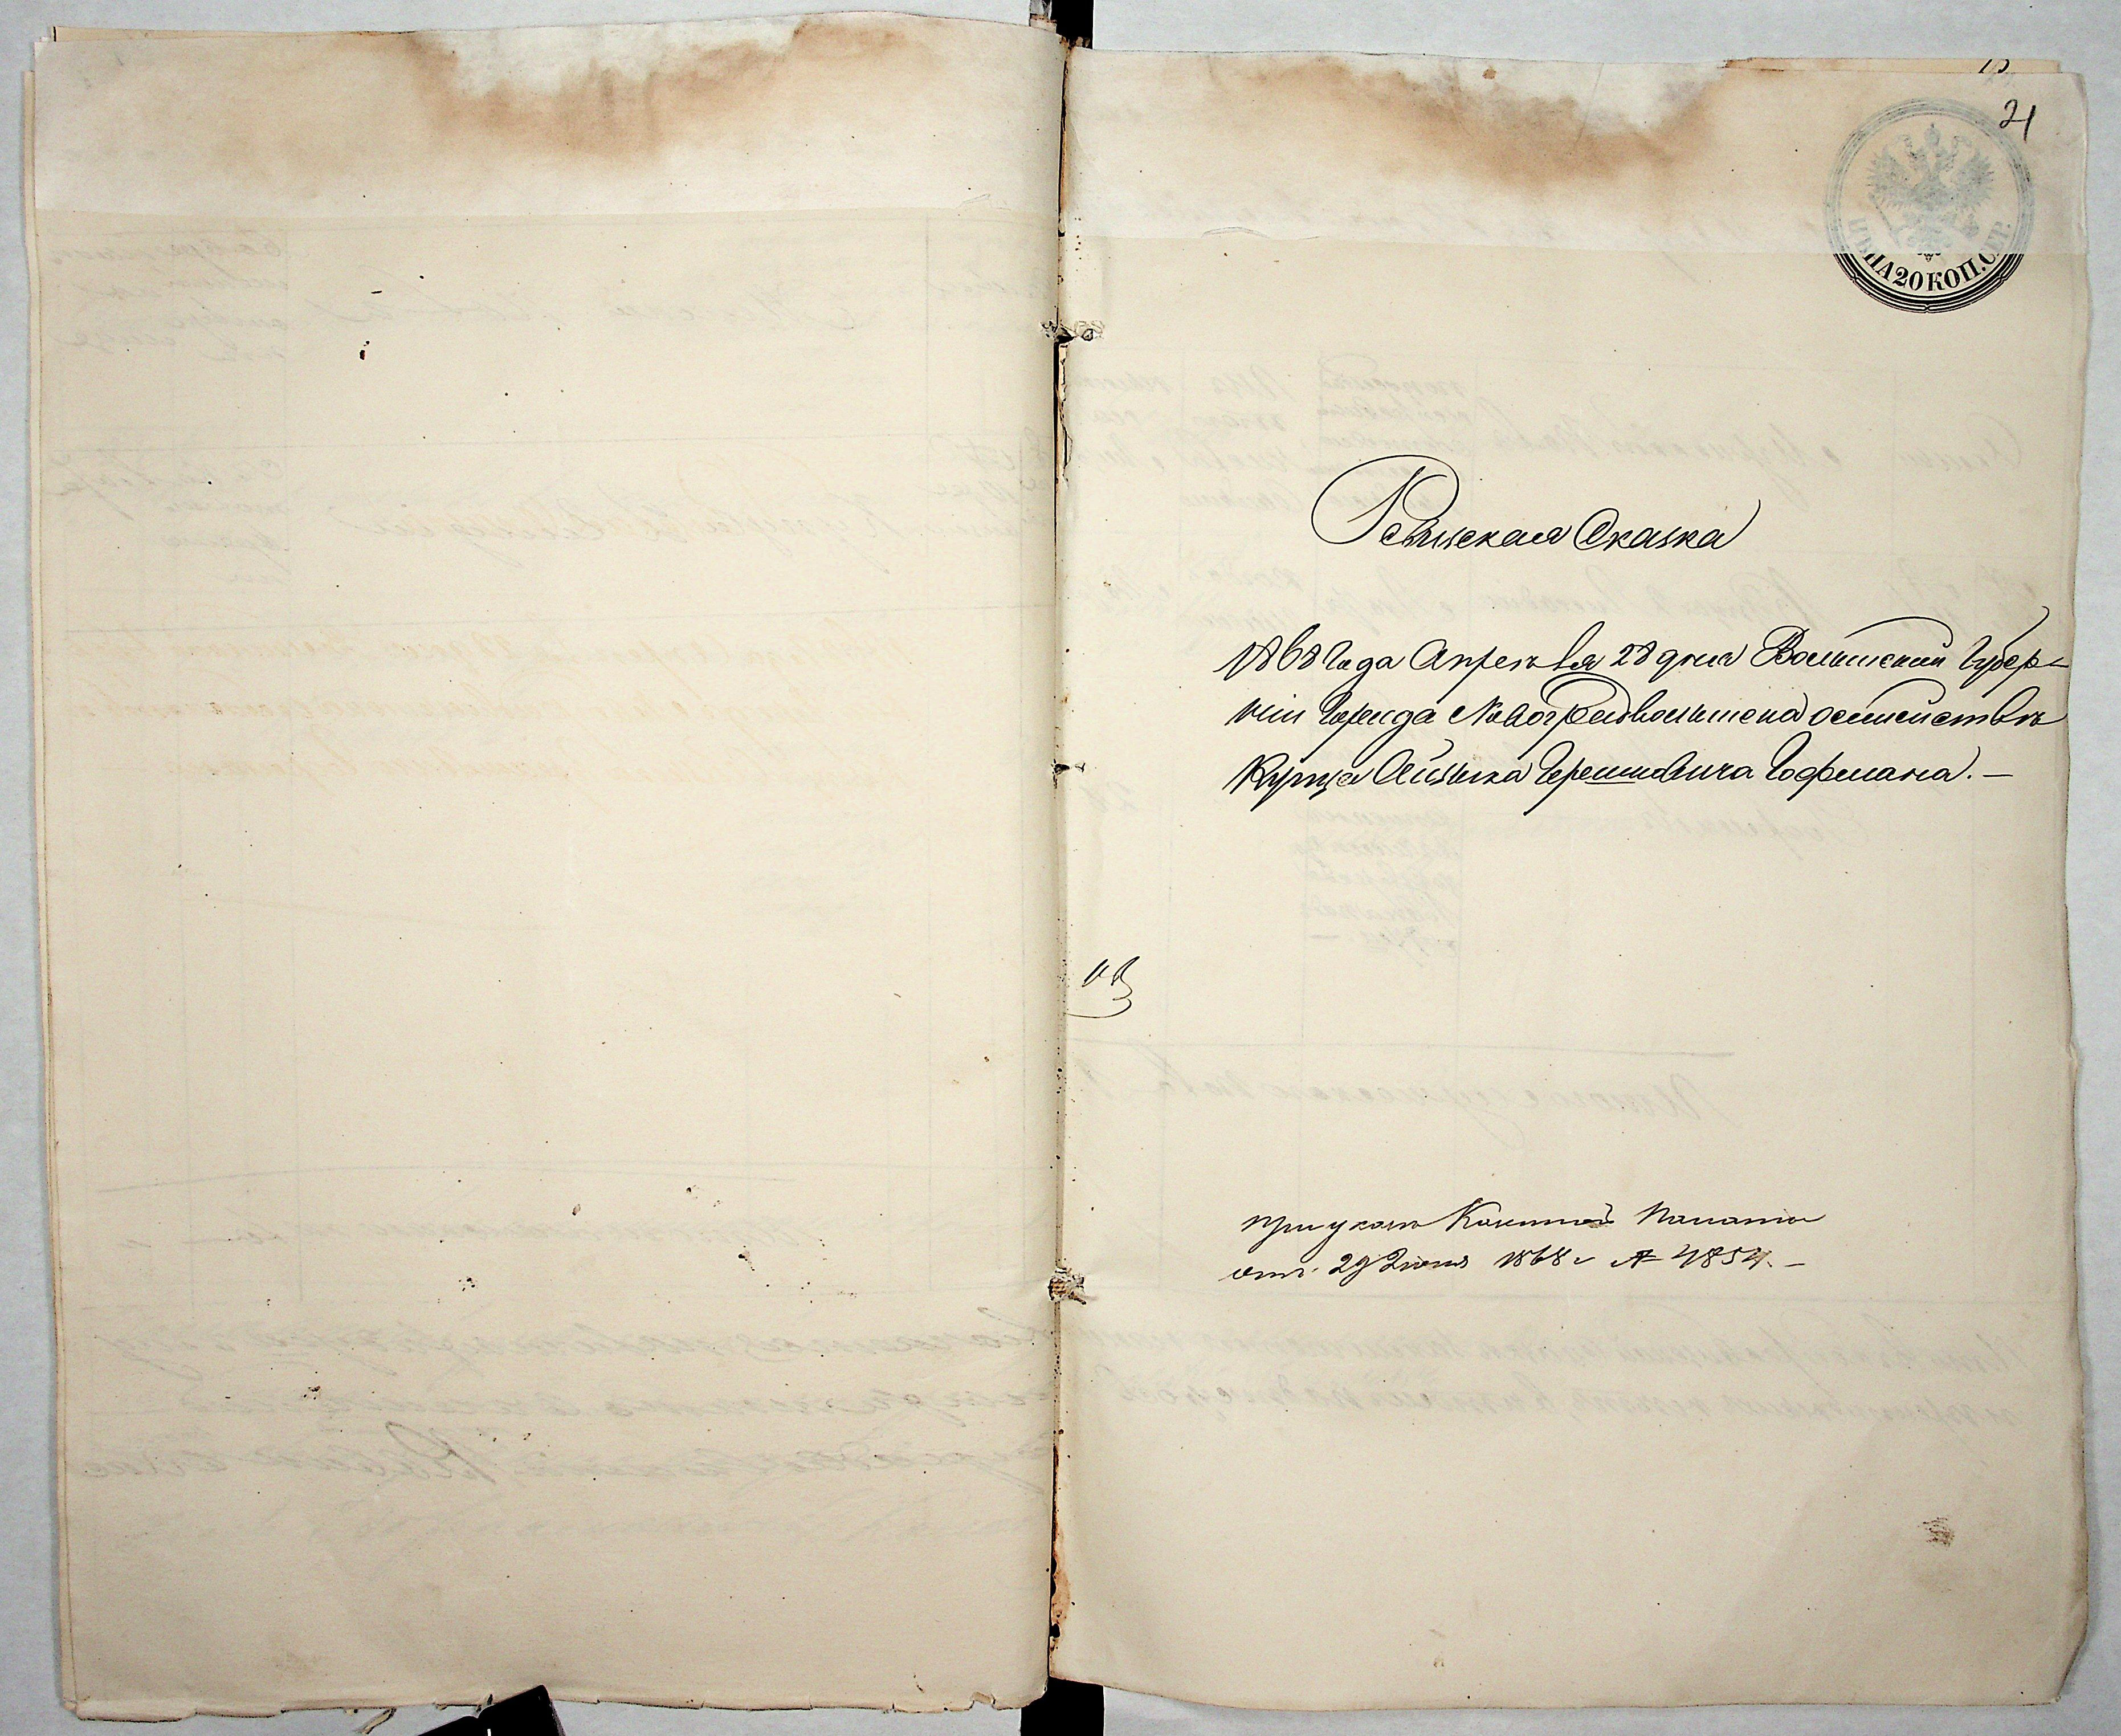 21
ЦѢНА 20 КОП. СЕР.
Ревизская Сказка
1868 Года Апреля 28 дня Волынской Губер-
ніи Города Новоградволынска о семействѣ
Купца Айзика Гершковича Гофмана. —
при указѣ Казенной Палаты
отъ 29 Іюня 1868 г № 4854. —